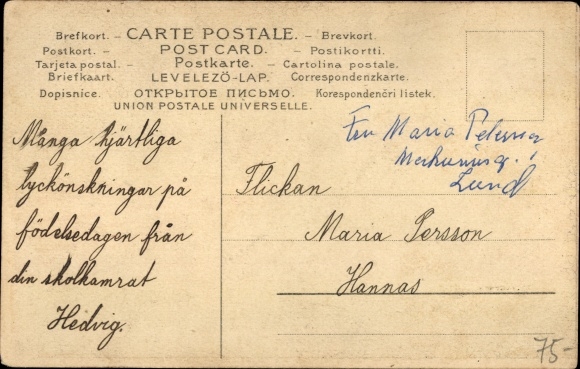 Brefkort. – CARTE POSTALE. – Brevkort.
Postkort. – POST CARD. – Postikortti.
Tarjeta postal. – Postkarte. – Cartolina postale.
Briefkaart. LEVELEZŐ-LAP. Correspondenzkarte.
Dopisnice. ОТКРЫТОЕ ПИСЬМО. Korespondenčri listek.
UNION POSTALE UNIVERSELLE.
Många hjärtliga
lyckönskningar på
födelsedagen från
din skolkamrat
Hedvig.
Maria
Lund
Flickan
Maria Persson
Hannas
75-